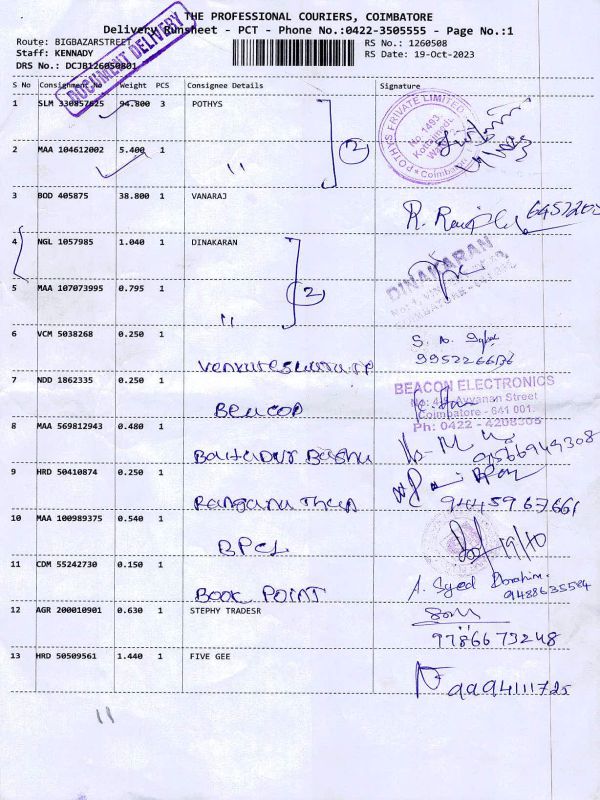 THE PROFESSIONAL COURIERS, COIMBATORE
Delivery Runsheet - PCT - Phone No.:0422-3505555 - Page No.:1
Route: BIGBAZARSTREET
RS No.: 1260508
Staff: KENNADY
RS Date: 19-Oct-2023
DRS No.: DCJB126050801
DOCUMENT DELIVERY
S No Consignment No Weight PCS Consignee Details Signature
1 SLM 330857625 94.800 3 POTHYS
POTHYS PRIVATE LIMITED
Coimbatore
2 MAA 104612002 5.400 1 〃
2
3 BOD 405875 38.800 1 VANARAJ
4 NGL 1057985 1.040 1 DINAKARAN
DINAKARAN
5 MAA 107073995 0.795 1 〃
2
6 VCM 5038268 0.250 1
9952266136
7 NDD 1862335 0.250 1 Beacon
BEACON ELECTRONICS
Ayyanan Street
Coimbatore - 641 001.
Ph: 0422 - 4208505
8 MAA 569812943 0.480 1
9566949308
9 HRD 50410874 0.250 1
9445967661
10 MAA 100989375 0.540 1 BPCL
19/10
11 CDM 55242730 0.150 1 BOOK POINT
A. Syed Ibrahim.
9488635584
12 AGR 200010901 0.630 1 STEPHY TRADESR
9786673248
13 HRD 50509561 1.440 1 FIVE GEE
9994111725
11